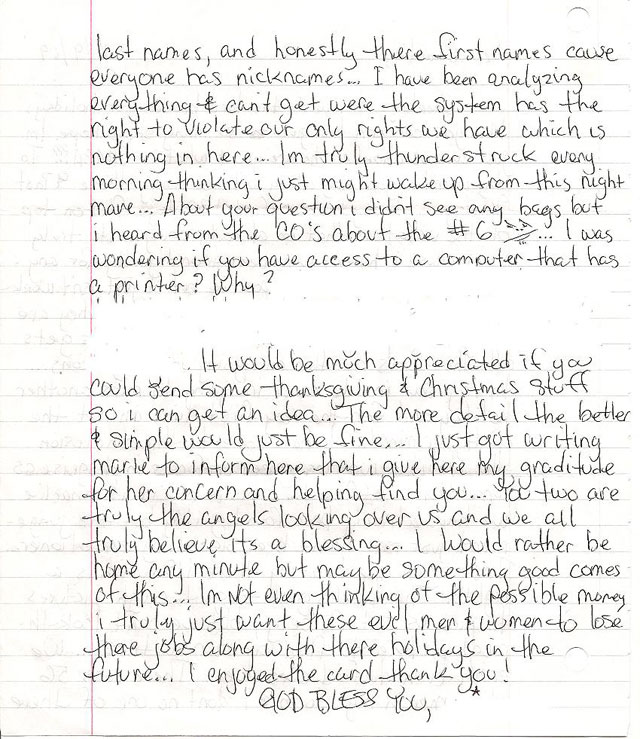 last names, and honestly there first names cause
everyone has nicknames... I have been analyzing
everything & can't get were the system has the
right to violate our only rights we have which is
nothing in here... Im truly thunder struck every
morning thinking i just might wake up from this night
mare... About your question i didn't see any bags but
i heard from the CO's about the #6 ... I was
wondering if you have access to a computer that has
a printer? Why?
It would be much appreciated if you
could send some thanksgiving & Christmas stuff
so i can get an idea... The more detail the better
& simple would just be fine... I just got writing
marie to inform here that i give here my graditude
for her concern and helping find you... You two are
truly the angels looking over us and we all
truly believe its a blessing... I would rather be
home any minute but may be something good comes
of this... Im not even thinking of the possible money
i truly just want these evel men & women to lose
there jobs along with there holidays in the
future... I enjoyed the card thank you!
GOD BLESS YOU,*